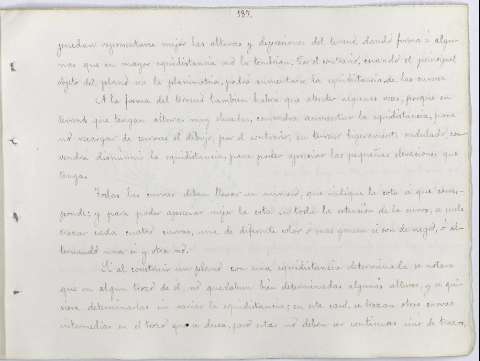 187.
puedan representarse mejor las alturas y depresiones del terreno dando forma á algu-
nas que en mayor equidistancia no la tendrian. Por el contrario, cuando el principal
objeto del plano sea la planimetria, podrá aumentarse la equidistancia de las curvas.
A la forma del terreno tambien habrá que atender algunas veces, porque en
terreno que tengan alturas muy elevadas, convendrá aumentar la equidistancia, para
no recargar de curvas el dibujo; por el contrario, en terreno ligeramente ondulado, con-
vendrá disminuir la equidistancia, para poder apreciar las pequeñas elevaciones que
tenga.
Todas las curvas deben llevar un número, que indique la cota a que corres-
ponde; y para poder apreciar mejor la cota en toda la extension de la curva, se suele
trazar cada cuatro curvas, una de diferente color ó mas gruesa si son de negro, ó al-
ternando una si y otra no.
Si al construir un plano con una equidistancia determinada se notara
que en algun trozo de él, no quedaban bien determinadas algunas alturas, y se qui-
siera determinarlas sin variar la equidistancia; en este caso se trazan otras curvas
intermedias en el trozo que se desea, pero estas no deben ser continuas sino de trazos,